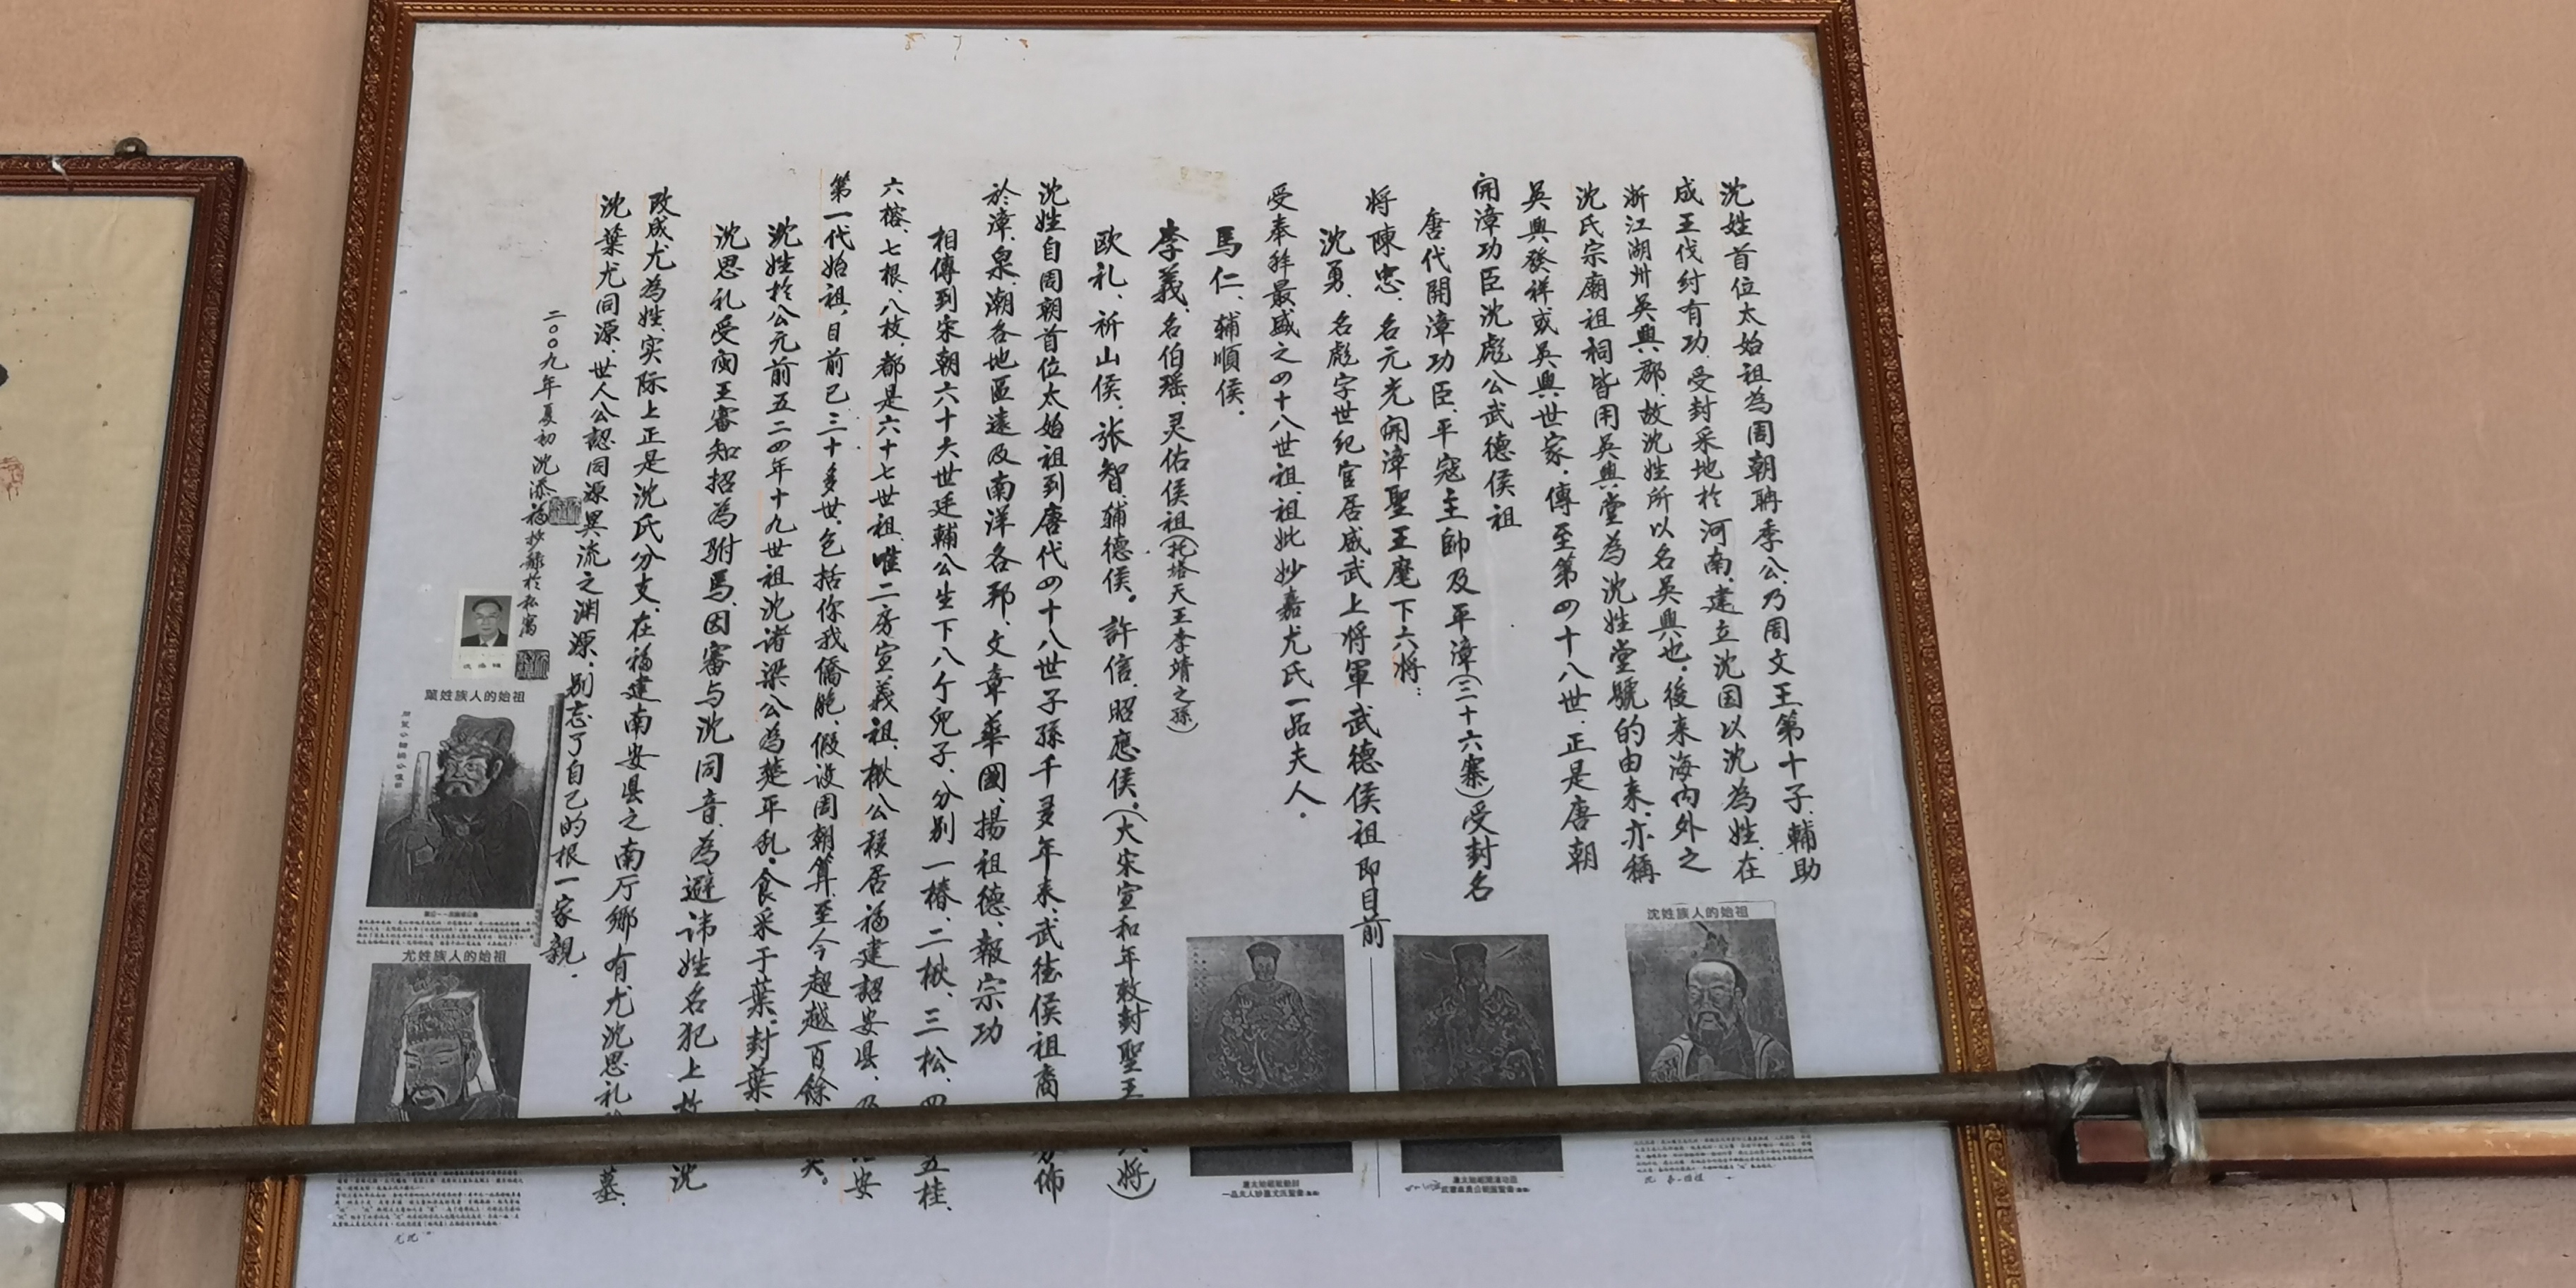 沈姓首位太始祖為周朝聃季公,乃周文王第十子.輔助
成王伐紂有功.受封采地於河南.建立沈国以沈為姓.在
浙江湖州吳興郡.故沈姓所以名吳興也.後来海内外之
沈氏宗廟祖祠皆用吳興堂為沈姓堂號的由来.亦稱
吳興發祥或吳興世家.傳至第四十八世.正是唐朝
開漳功臣沈彪公武德侯祖
唐代開漳功臣.平寇主帥及平漳(三十六寨)受封名
将陳忠.名元光開漳聖王麾下六將:
沈勇.名彪字世纪官居威武上将軍武德侯祖即目前
受奉拜最盛之四十八世祖.祖妣妙嘉尤氏一品夫人.
馬仁、輔順侯.
李義.名伯瑤.灵佑侯祖(托塔天王李靖之孫)
欧礼、祈山侯.张智.辅德侯.許信.昭應侯.(大宋宣和年敕封聖王 将)
沈姓自周朝首位太始祖到唐代四十八世子孫千多年来.武德侯祖裔 佈
於漳.泉.潮各地區遠及南洋各邦.文章華國.揚祖德.報宗功
相傳到宋朝六十六世廷輔公生下八个兒子.分别一椿、二楸、三松、四 五桂.
六榕、七根、八枝.都是六十七世祖.唯二房宣義祖.楸公移居福建詔安县. 安
第一代始祖.目前已三十多世.包括你我僑胞.假设周朝算至今超越百餘
沈姓於公元前五二四年十九世祖沈诸梁公為楚平乱.食采于葉.封葉
沈思礼受闽王審知招為駙馬.因審与沈同音.為避讳姓名犯上故 沈
改成尤為姓.实际上正是沈氏分支.在福建南安县之南厅鄉有尤沈思礼 墓.
沈葉尤同源.世人公認同源異流之渊源.别忘了自己的根一家親.
二〇〇九年夏初沈添福抄錄於私寓
葉姓族人的始祖
尤姓族人的始祖
沈姓族人的始祖